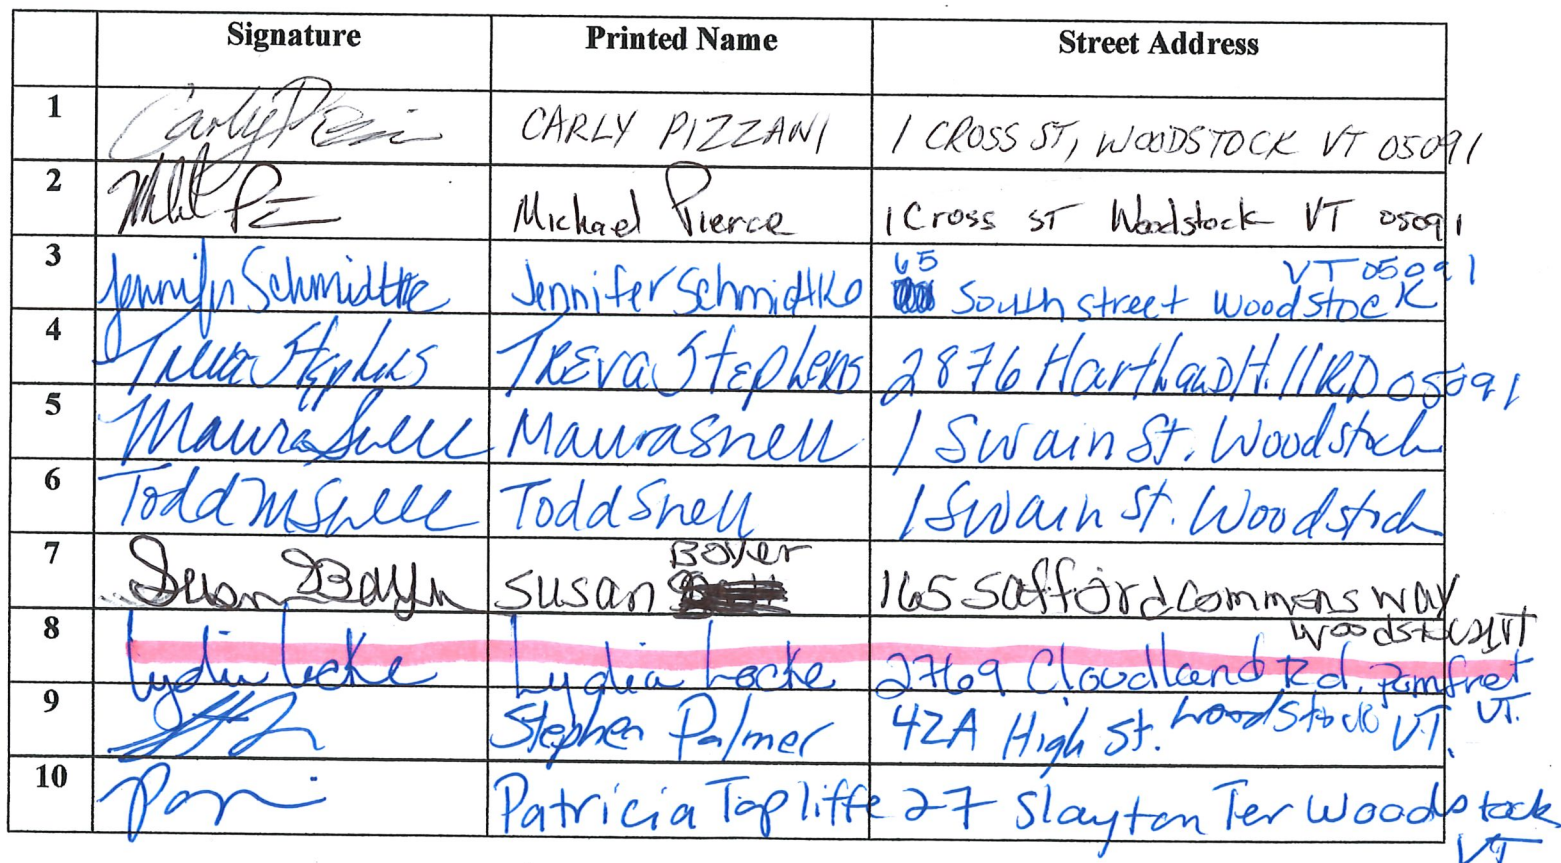 Signature Printed Name Street Address
1 Carly Pizzani CARLY PIZZANI 1 CROSS ST, WOODSTOCK VT 05091
2 Michael Pierce 1 Cross ST Woodstock VT 05091
3 Jennifer Schmidtke Jennifer Schmidtke 65 South street Woodstock VT 05091
4 Treva Stephens TREva Stephens 2876 HartlanD Hill RD 05091
5 Maura Snell Maura Snell 1 Swain St. Woodstock
6 Todd M Snell Todd Snell 1 Swain St. Woodstock
7 Susan Boyer Susan Boyer 165 Safford commons way
Woodstock VT
8 Lydia Locke Lydia Locke 2769 Cloudland Rd. Pomfret
VT.
9 Stephen Palmer 42A High St. Woodstock VT.
10 Patricia Topliffe 27 Slayton Ter Woodstock
VT